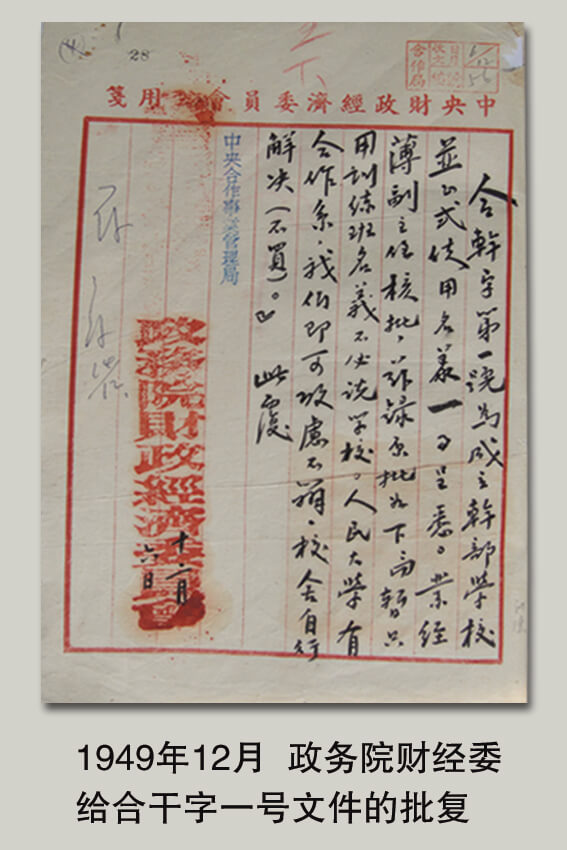 28
中央財政經濟委員會用箋
合幹字第一號為成立幹部學校
並正式使用名義一事呈悉。業經
薄副主任核批，茲錄原批如下「暫只
用训练班名義不必说学校。人民大學有
合作系，我们即可攷慮不辦，校舍自行
解决（不買）。」 此覆
中央合作事業管理局
政務院財政經濟委員會
十二月
六日
1949年12月 政务院财经委
给合干字一号文件的批复